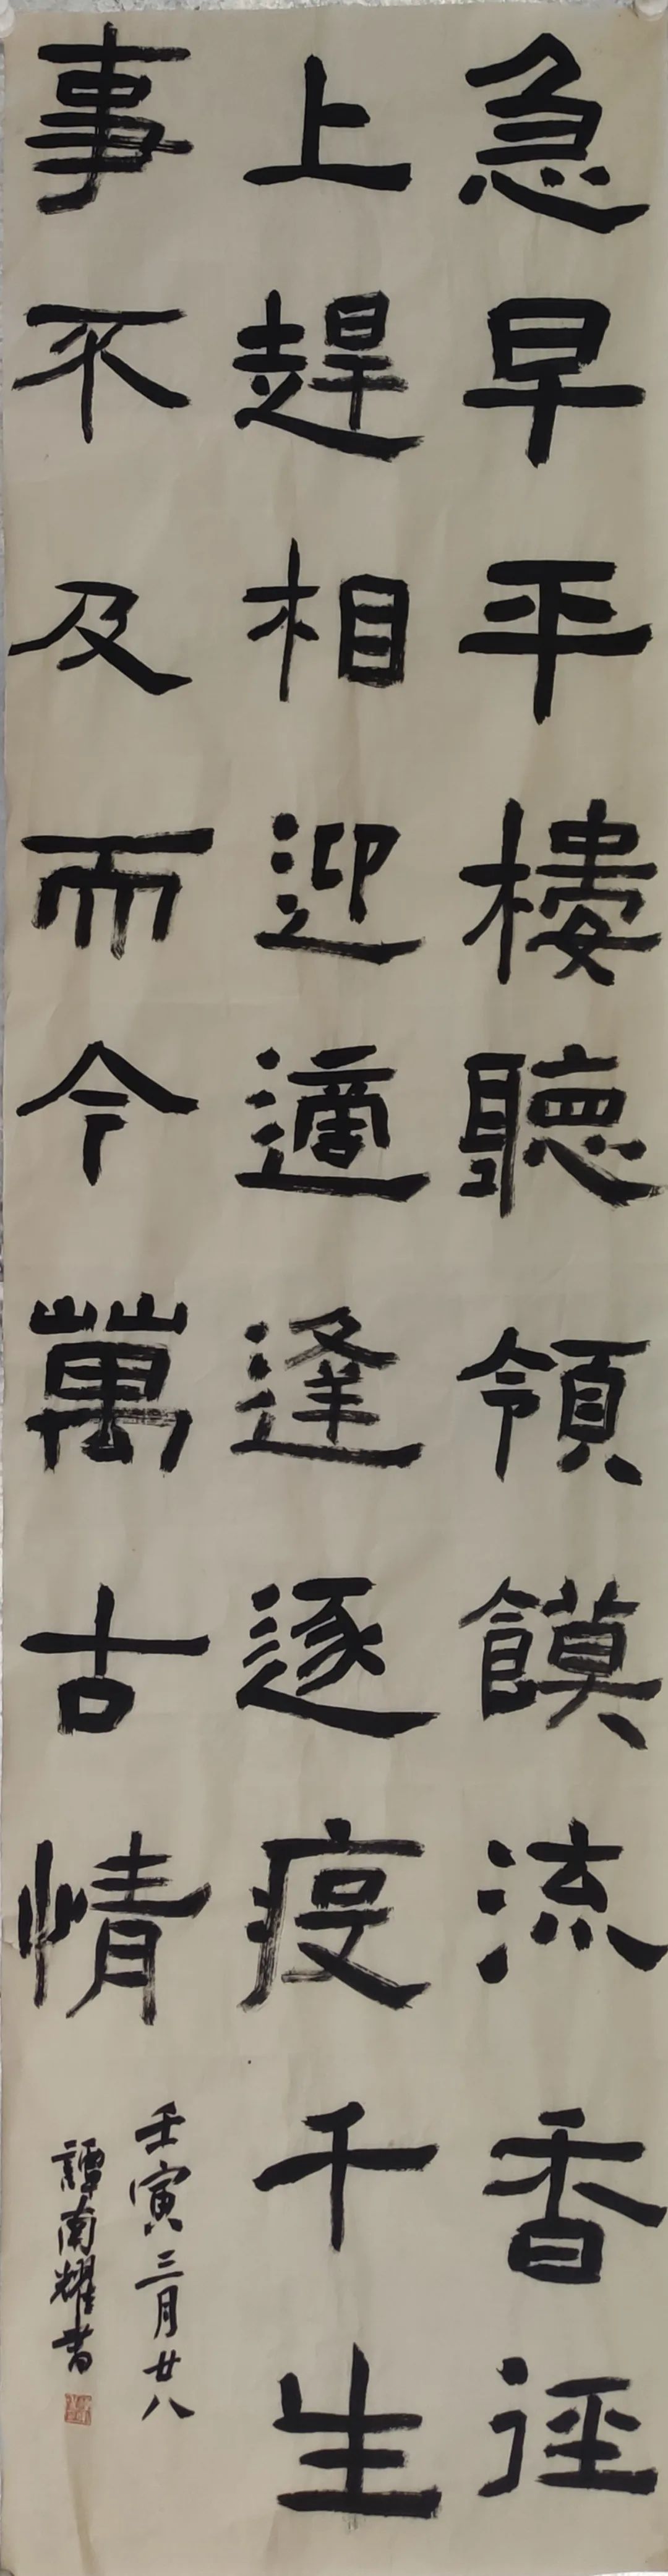 急早平樓聽領饃流香徑
上趕相迎適逢逐疫千生
事不及而今萬古情
壬寅三月廿八
譚南耀書